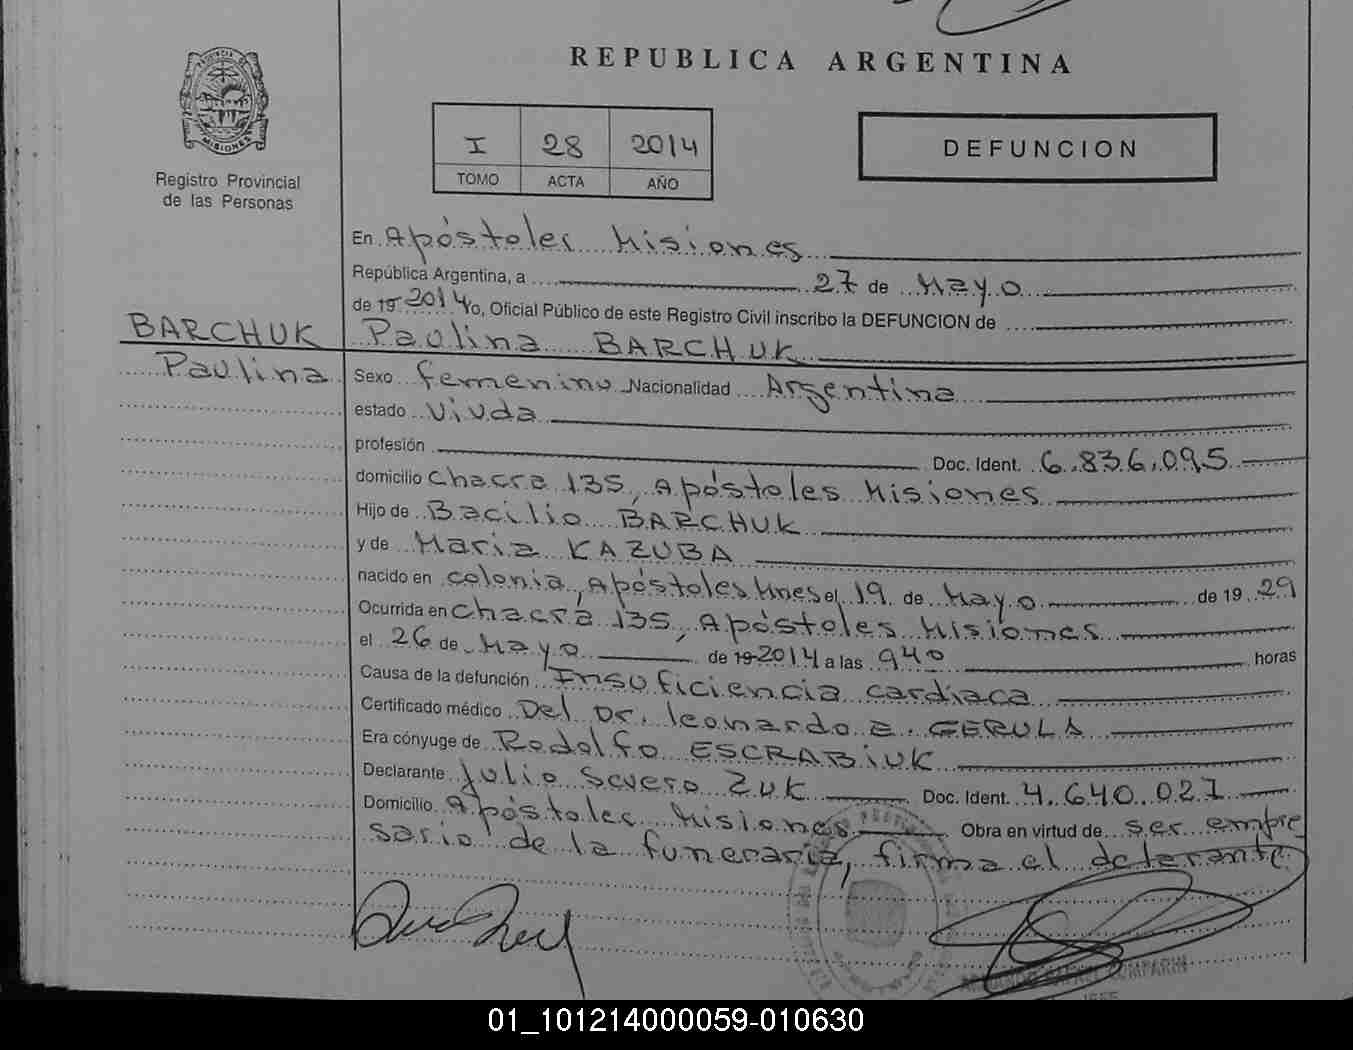 REPUBLICA ARGENTINA
PROVINCIA DE
MISIONES
Registro Provincial
de las Personas
I 28 2014
TOMO ACTA AÑO
DEFUNCION
En Apóstoles Misiones
República Argentina, a 27 de Mayo
de 19 2014 yo, Oficial Público de este Registro Civil inscribo la DEFUNCION de
BARCHUK Paulina BARCHUK
Paulina Sexo femenino Nacionalidad Argentina
estado viuda
profesión Doc. Ident. 6.836.095
domicilio chacra 135, Apóstoles Misiones
Hijo de Bacilio BARCHUK
y de Maria KAZUBA
nacido en colonia, Apóstoles Mnes el 19 de Mayo de 19 29
Ocurrida en chacra 135, Apóstoles Misiones
el 26 de Mayo de 19 2014 a las 940 horas
Causa de la defunción Insuficiencia cardiaca
Certificado médico Del Dr. leonardo E. GERULA
Era cónyuge de Rodolfo ESCRABIUK
Declarante Julio Severo ZUK Doc. Ident. 4.640.027
Domicilio Apóstoles Misiones Obra en virtud de ser empre
sario de la funeraria, firma el
01_101214000059-010630